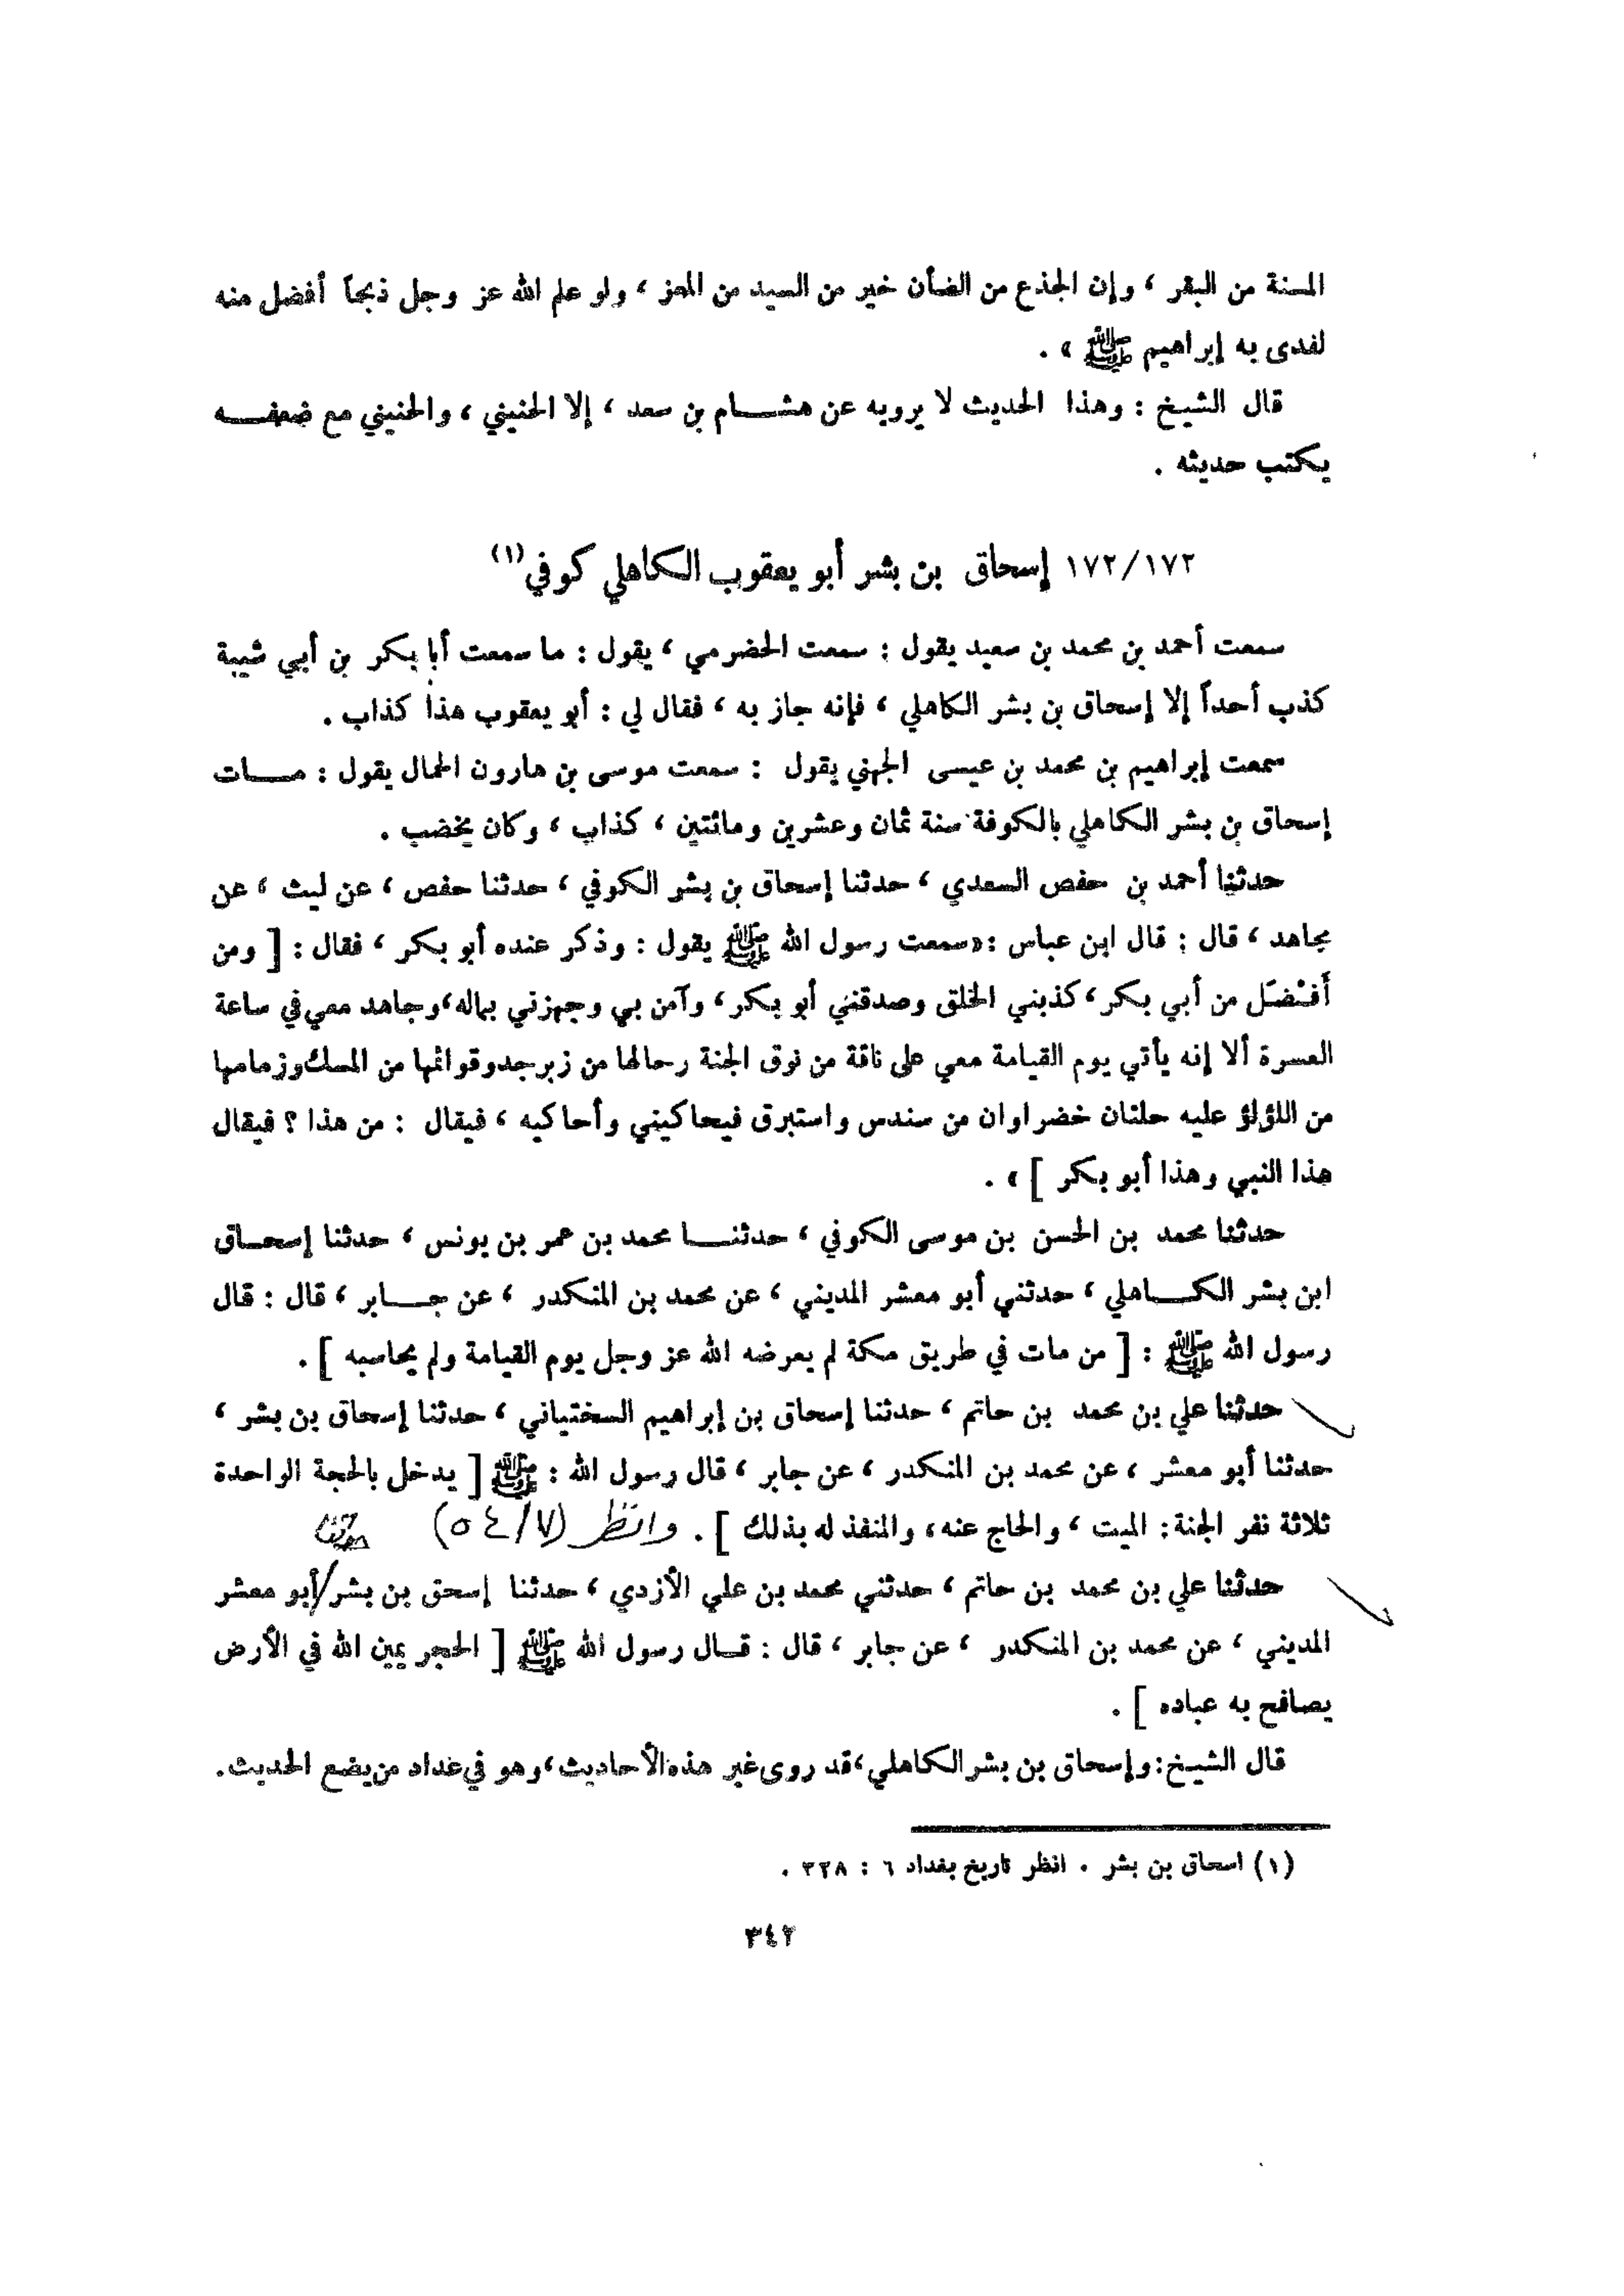 المسنة من البقر ، وإن الجذع من الضأن خير من السيد من المعز ، ولو علم الله عز وجل ذبحاً أفضل منه
لفدى به إبراهيم ﷺ » .
قال الشيخ : وهذا الحديث لا يرويه عن هشــام بن سعد ، إلا الحنيني ، والحنيني مع ضعفــه
يكتب حديثه .
١٧٢/١٧٢ إسحاق بن بشر أبو يعقوب الكاهلي كوفي(١)
سمعت أحمد بن محمد بن سعيد يقول : سمعت الحضرمي ، يقول : ما سمعت أبا بكر بن أبي شيبة
كذب أحداً إلا إسحاق بن بشر الكاهلي ، فإنه جاز به ، فقال لي : أبو يعقوب هذا كذاب .
سمعت إبراهيم بن محمد بن عيسى الجهني يقول : سمعت موسى بن هارون الحمال يقول : مــات
إسحاق بن بشر الكاهلي بالكوفة سنة ثمان وعشرين ومائتين ، كذاب ، وكان يخضب .
حدثنا أحمد بن حفص السعدي ، حدثنا إسحاق بن بشر الكوفي ، حدثنا حفص ، عن ليث ، عن
مجاهد ، قال : قال ابن عباس : «سمعت رسول الله ﷺ يقول : وذكر عنده أبو بكر ، فقال : [ ومن
أَفْضَل من أبي بكر ، كذبني الخلق وصدقني أبو بكر ، وآمن بي وجهزني بماله ، وجاهد معي في ساعة
العسرة ألا إنه يأتي يوم القيامة معي على ناقة من نوق الجنة رحالها من زبرجد وقوائمها من المسك وزمامها
من اللؤلؤ عليه حلتان خضراوان من سندس واستبرق فيحاكيني وأحاكيه ، فيقال : من هذا ؟ فيقال
هذا النبي وهذا أبو بكر ] » .
حدثنا محمد بن الحسن بن موسى الكوفي ، حدثنــا محمد بن عمر بن يونس ، حدثنا إسحــاق
ابن بشر الكــاهلي ، حدثني أبو معشر المديني ، عن محمد بن المنكدر ، عن جــابر ، قال : قال
رسول الله ﷺ : [ من مات في طريق مكة لم يعرضه الله عز وجل يوم القيامة ولم يحاسبه ] .
حدثنا علي بن محمد بن حاتم ، حدثنا إسحاق بن إبراهيم السختياني ، حدثنا إسحاق بن بشر ،
حدثنا أبو معشر ، عن محمد بن المنكدر ، عن جابر ، قال رسول الله : ﷺ [ يدخل بالحجة الواحدة
ثلاثة نفر الجنة : الميت ، والحاج عنه ، والمنفذ له بذلك ] . وانظر (٥٤/٧) حدثنا
حدثنا علي بن محمد بن حاتم ، حدثني محمد بن علي الأزدي ، حدثنا إسحق بن بشر/أبو معشر
المديني ، عن محمد بن المنكدر ، عن جابر ، قال : قــال رسول الله ﷺ [ الحجر يمين الله في الأرض
يصافح به عباده ] .
قال الشيخ : وإسحاق بن بشر الكاهلي ، قد روى غير هذه الأحاديث ، وهو في عداد من يضع الحديث .
(١) اسحاق بن بشر . انظر تاريخ بغداد ٦ : ٣٢٨ .
٣٤٢